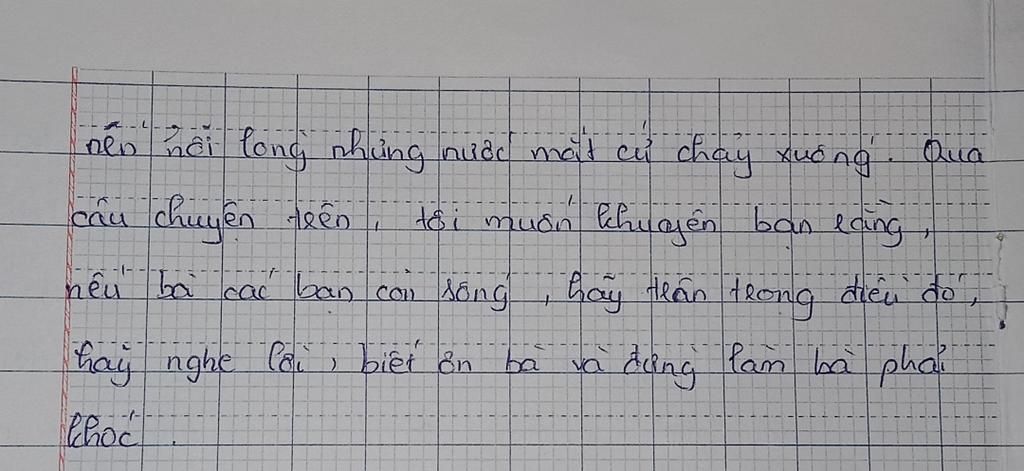 nén nỗi lòng những nước mắt cứ chảy xuống. Qua
câu chuyện trên, tôi muốn khuyên bạn rằng,
nếu bà các bạn còn sống, hãy trân trọng điều đó,
hãy nghe lời, biết ơn bà và đừng làm bà phải
khóc.